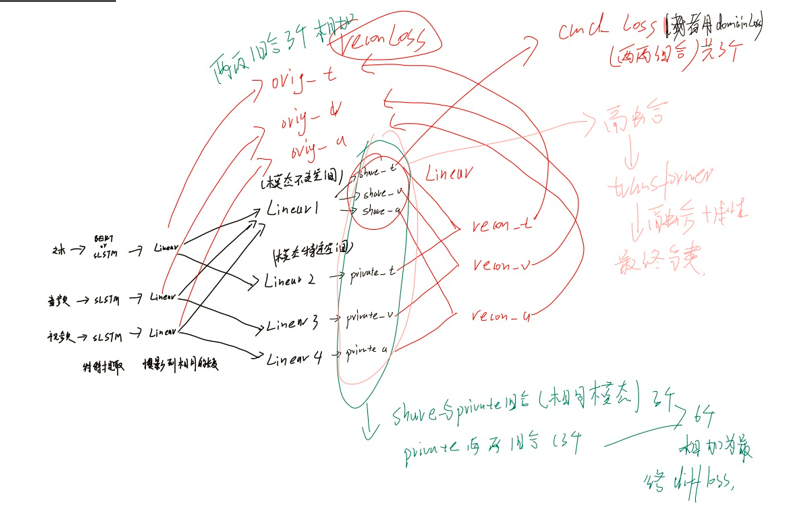 两两组合3个相加
recon Loss
cmd Loss (或者用domainLoss)
(两两组合)共3个
orig_t
orig_v
orig_a
(模态不变空间)
Linear1
share_t
share_v
share_a
Linear
高融合
transformer
融合+线性
最终分类
文本
BERT
or
sLSTM
Linear
音频
sLSTM
Linear
视频
sLSTM
Linear
特征提取
投影到相同的维度
(模态特定空间)
Linear 2
private_t
Linear 3
private_v
Linear 4
private a
recon_t
recon_v
recon_a
share与private组合(相同模态) 3个
private两两组合 (3个
6个
相加为最
终 diff loss,